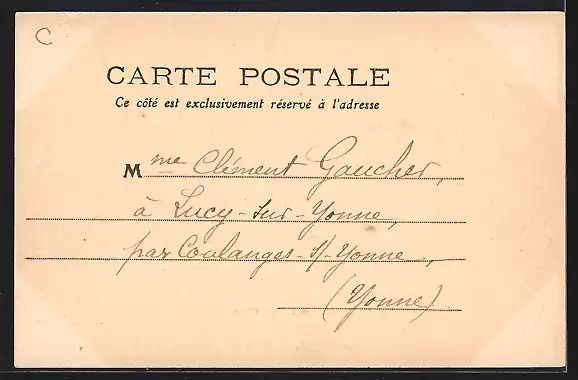 C
CARTE POSTALE
Ce côté est exclusivement réservé à l'adresse
Mme Clément Gaucher,
à Lucy-sur-Yonne,
par Coulanges-s/-Yonne,
(Yonne)